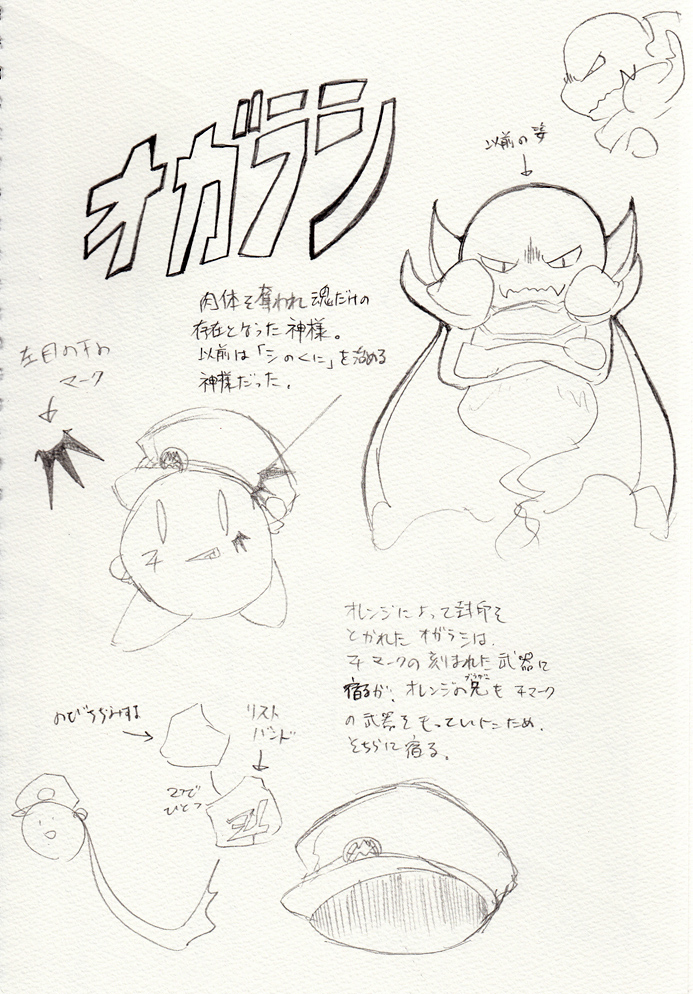 オガラシ
以前の姿
肉体を奪われ魂だけの
存在となった神様。
以前は「シのくに」を治める
神様だった。
左目の下の
マーク
オレンジによって封印を
とかれたオガラシは、
チマークの刻まれた武器に
宿るが、オレンジの兄もチマーク
の武器をもっていたため、
そちらに宿る。
のびちぢみする
リスト
バンド
2つで
ひとつ